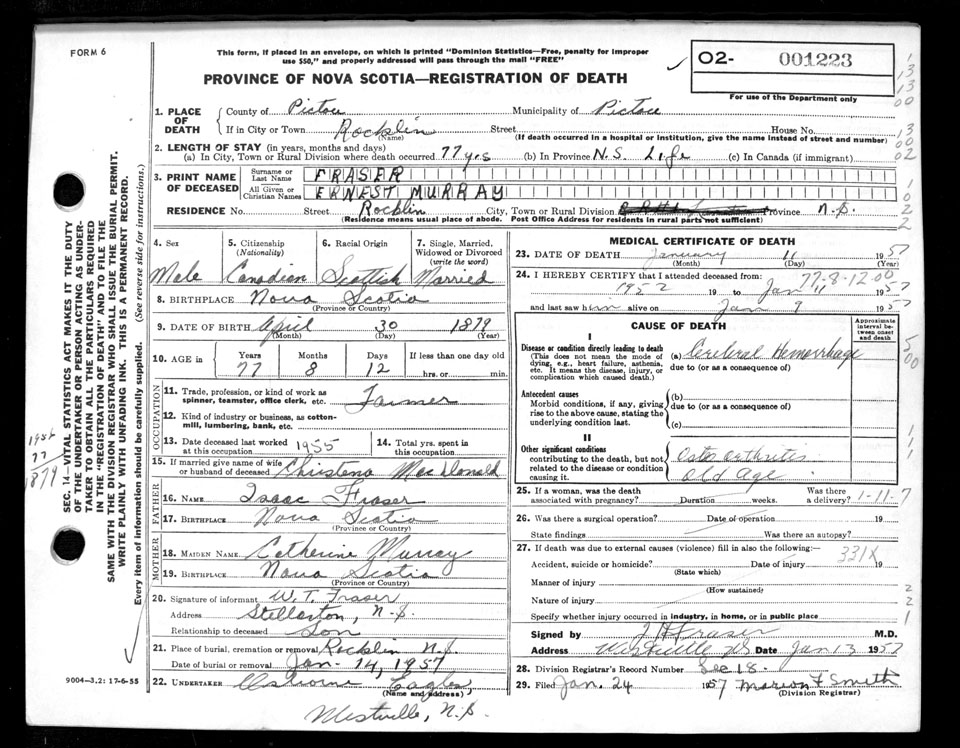 FORM 6
This form, if placed in an envelope, on which is printed "Dominion Statistics—Free, penalty for improper
use $50," and properly addressed will pass through the mail "FREE"
PROVINCE OF NOVA SCOTIA—REGISTRATION OF DEATH
O2- 001223
For use of the Department only
1. PLACE OF DEATH
County of Pictou Municipality of Pictou
If in City or Town Rocklin Street House No.
(Name) (If death occurred in a hospital or institution, give the name instead of street and number)
2. LENGTH OF STAY (in years, months and days)
(a) In City, Town or Rural Division where death occurred 77 yrs (b) In Province N.S. Life (c) In Canada (if immigrant)
3. PRINT NAME OF DECEASED
Surname or Last Name FRASER
All Given or Christian Names ERNEST MURRAY
RESIDENCE No. Street Rocklin City, Town or Rural Division Province N.S.
(Residence means usual place of abode. Post Office Address for residents in rural parts not sufficient)
4. Sex 5. Citizenship (Nationality) 6. Racial Origin 7. Single, Married, Widowed or Divorced (write the word)
Male Canadian Scottish Married
8. BIRTHPLACE Nova Scotia
(Province or Country)
9. DATE OF BIRTH April 30 1879
(Month) (Day) (Year)
10. AGE in Years Months Days If less than one day old
77 8 12 hrs. or min.
OCCUPATION
11. Trade, profession, or kind of work as spinner, teamster, office clerk, etc. Farmer
12. Kind of industry or business, as cotton-mill, lumbering, bank, etc.
13. Date deceased last worked at this occupation 1955 14. Total yrs. spent in this occupation
15. If married give name of wife or husband of deceased Christena MacDonald
FATHER
16. NAME Isaac Fraser
17. BIRTHPLACE Nova Scotia
(Province or Country)
MOTHER
18. MAIDEN NAME Catherine Murray
19. BIRTHPLACE Nova Scotia
(Province or Country)
20. Signature of informant W.T. Fraser
Address Stellarton, N.S.
Relationship to deceased Son
21. Place of burial, cremation or removal Rocklin N.S.
Date of burial or removal Jan- 14, 1957
22. UNDERTAKER Osborne Eagles,
(Name and address)
Westville, N.S.
9004—3,2: 17-6-55
MEDICAL CERTIFICATE OF DEATH
23. DATE OF DEATH January 11 1957
(Month) (Day) (Year)
77-8-12.00
24. I HEREBY CERTIFY that I attended deceased from:
1952 19 to Jan 11 1957
and last saw him alive on Jan 9 1957
CAUSE OF DEATH
Approximate interval between onset and death
I
Disease or condition directly leading to death
(This does not mean the mode of dying, e.g., heart failure, asthenia, etc. It means the disease, injury, or complication which caused death.)
(a) Cerebral Hemorrhage
due to (or as a consequence of)
Antecedent causes
Morbid conditions, if any, giving rise to the above cause, stating the underlying condition last.
(b)
due to (or as a consequence of)
(c)
II
Other significant conditions
contributing to the death, but not related to the disease or condition causing it.
Osteo arthritis
Old Age
25. If a woman, was the death associated with pregnancy? Duration weeks. Was there a delivery? 1-11-7
26. Was there a surgical operation? Date of operation 19
State findings Was there an autopsy?
27. If death was due to external causes (violence) fill in also the following:—
331X
Accident, suicide or homicide? Date of injury 19
(State which)
Manner of injury
(How sustained)
Nature of injury
Specify whether injury occurred in industry, in home, or in public place
Signed by J H Fraser M.D.
Address Westville NS Date Jan 13 1957
28. Division Registrar's Record Number Dec 18-
29. Filed Jan. 24 1957 Marion F Smith
(Division Registrar)
SEC. 14—VITAL STATISTICS ACT MAKES IT THE DUTY
OF THE UNDERTAKER OR PERSON ACTING AS UNDER-
TAKER TO OBTAIN ALL THE PARTICULARS REQUIRED
IN THE "REGISTRATION OF DEATH" AND TO FILE THE
SAME WITH THE DIVISION REGISTRAR WHO SHALL ISSUE THE BURIAL PERMIT.
WRITE PLAINLY WITH UNFADING INK. THIS IS A PERMANENT RECORD.
Every item of information should be carefully supplied. (See reverse side for instructions.)
1956
77
1879